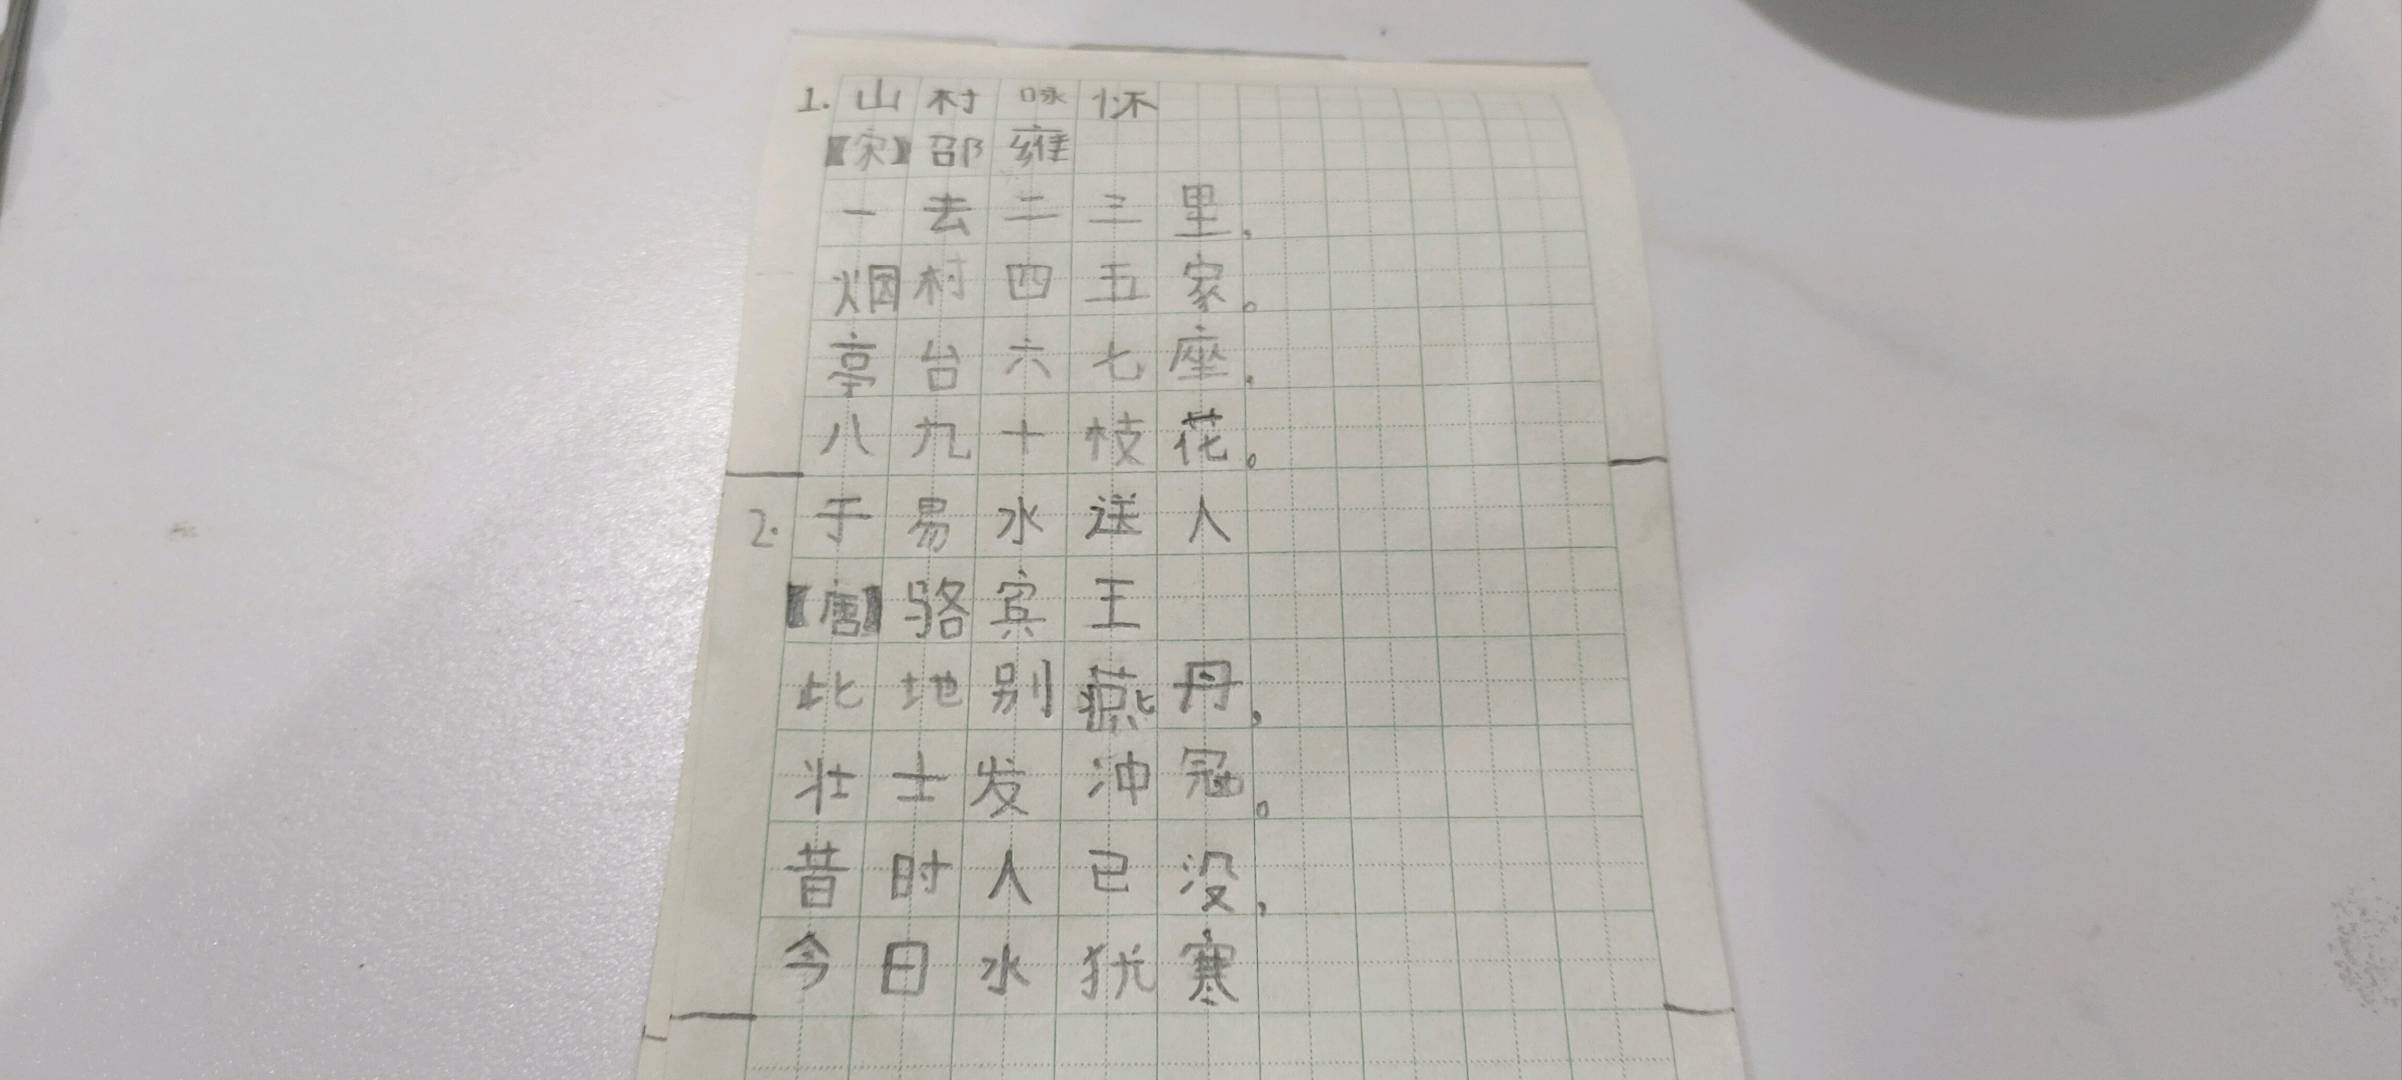 1. 山村咏怀
【宋】邵雍
一去二三里,
烟村四五家。
亭台六七座.
八九十枝花。
2. 于易水送人
【唐】骆宾王
此地别燕丹,
壮士发冲冠。
昔时人已没,
今日水犹寒